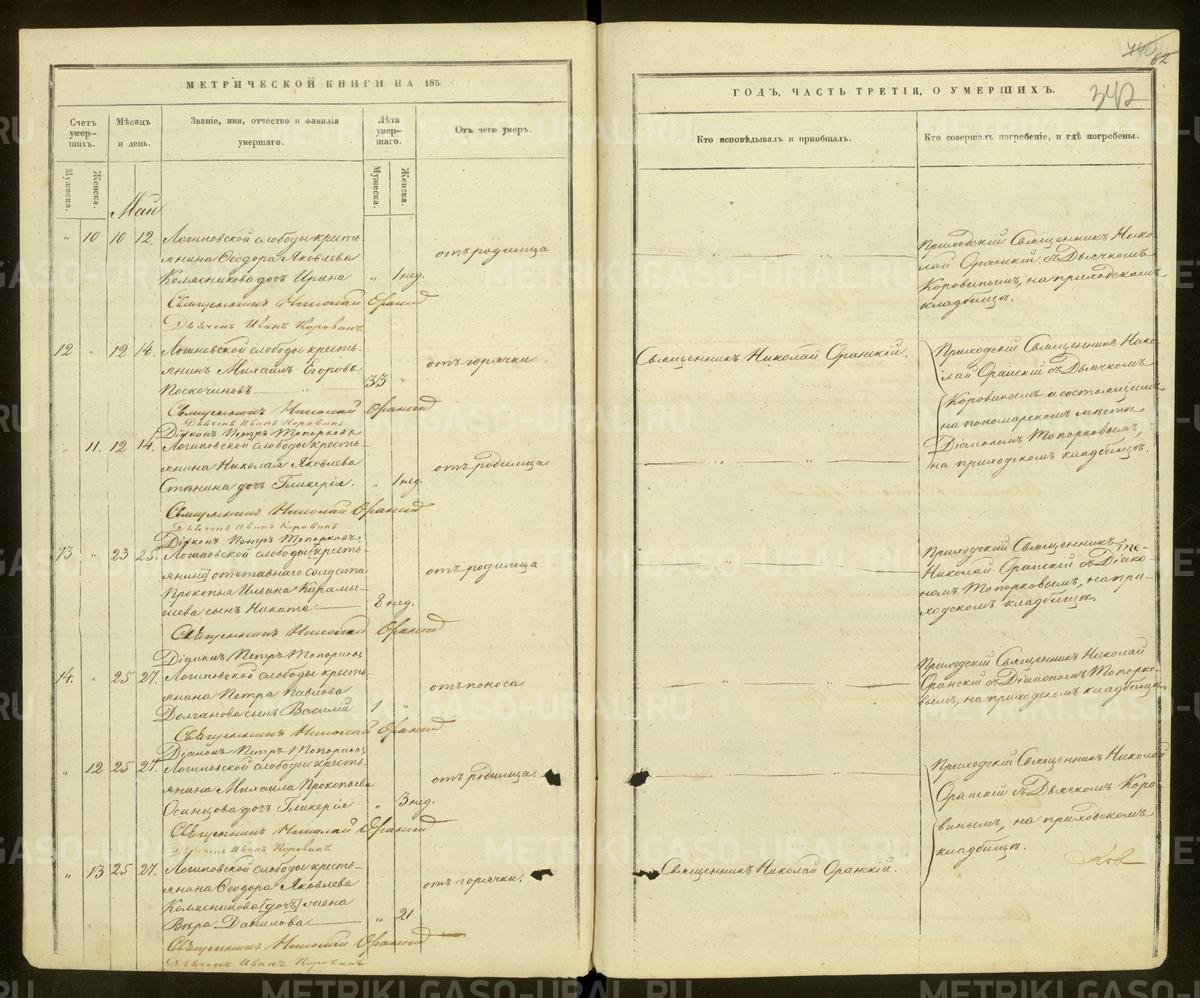 МЕТРИЧЕСКОЙ КНИГИ НА 185
Счетъ умер-шихъ.
Мѣсяцъ и день.
Званіе, имя, отчество и фамилія умершаго.
Лѣта умер-шаго.
Отъ чего умеръ.
Мужеска.
Женска.
Мужеска.
Женска.
Май
" 10 10 12. Логиновской слободы кресть-
янина Ѳеодора Яковлева
отъ родимца
Колясникова дочь Ирина " 1 нед.
Священникъ Николай Оранскій
Дьячекъ Иванъ Коровинъ
12 " 12 14. Логиновской слободы кресть-
янинъ Михаилъ Егоровъ
отъ горячки
Поскочиновъ 33 "
Священникъ Николай Оранскій
Дьячекъ Иванъ Коровинъ
Діаконъ Петръ Топорковъ
" 11. 12 14. Логиновской слободы кресть-
янина Николая Яковлева
отъ родимца
дочь Гликерія. " 1 нед.
Священникъ Николай Оранскій
Дьячекъ Иванъ Коровинъ
Діаконъ Петръ Топорковъ
13 " 23 25. Логиновской слободы кресть-
отставнаго солдата
отъ родимца
Прокопья Ильина Карамы-
шева сынъ Никита 8 нед.
Священникъ Николай Оранскій
Діаконъ Петръ Топорковъ
14. " 25 27. Логиновской слободы кресть-
янина Петра Павлова
отъ поноса
Долганова сынъ Василій 1 "
Священникъ Николай Оранскій
Діаконъ Петръ Топорковъ
" 12 25 27. Логиновской слободы кресть-
янина Михаила Прокопьева
отъ родимца.
Осинцова дочь Гликерія " 3 нед.
Священникъ Николай Оранскій
Дьячекъ Иванъ Коровинъ
" 13 25 27. Логиновской слободы кресть-
янина Ѳеодора Яковлева
отъ горячки.
Колясникова [дочь] жена
Вѣра Данилова " 21
Священникъ Николай Оранскій
Дьячекъ Иванъ Коровинъ
62
342
ГОДЪ, ЧАСТЬ ТРЕТІЯ, О УМЕРШИХЪ.
Кто исповѣдывалъ и приобщалъ.
Кто совершалъ погребеніе, и гдѣ погребены.
Приходскій Священникъ Нико-
лай Оранскій, съ Дьячкомъ
Коровинымъ, на приходскомъ
кладбищѣ.
Священникъ Николай Оранскій.
Приходскій Священникъ Нико-
лай Оранскій съ Дьячкомъ
Коровинымъ и состоящимъ
на пономарскомъ мѣстѣ
Діакономъ Топорковымъ,
на приходскомъ кладбищѣ.
Приходскій Священникъ
Николай Оранскій съ Діако-
номъ Топорковымъ, на при-
ходскомъ кладбищѣ
Приходскій Священникъ Николай
Оранскій съ Діакономъ Топорко-
вымъ, на приходскомъ кладбищѣ
Приходскій Священникъ Николай
Оранскій съ Дьячкомъ Коро-
винымъ, на приходскомъ
кладбищѣ.
Священникъ Николай Оранскій.
METRIKI.GASO-URAL.RU